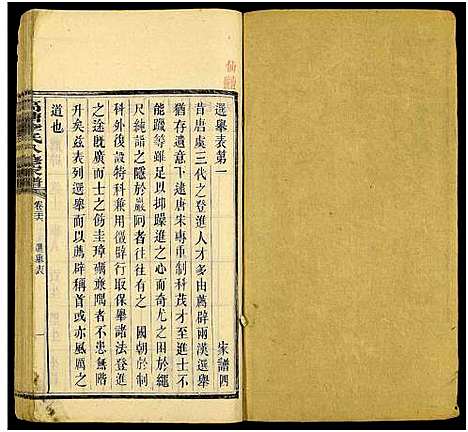 選舉表第一
家譜四
昔唐虞三代之登進人才多由薦辟兩漢選舉
猶存遺意下逮唐宋專重制科茂才至進士不
能躐等雖足以抑躁進之心而奇尤之困於繩
尺純詣之隱於巖阿者往往有之　國朝於制
科外復設特科兼用徵辟行取保舉諸法登進
之途既廣而士之飭圭璋礪廉隅者不患無階
升矣茲表列選舉而以薦辟稱首或亦風厲之
道也
卷三六
選舉表
一